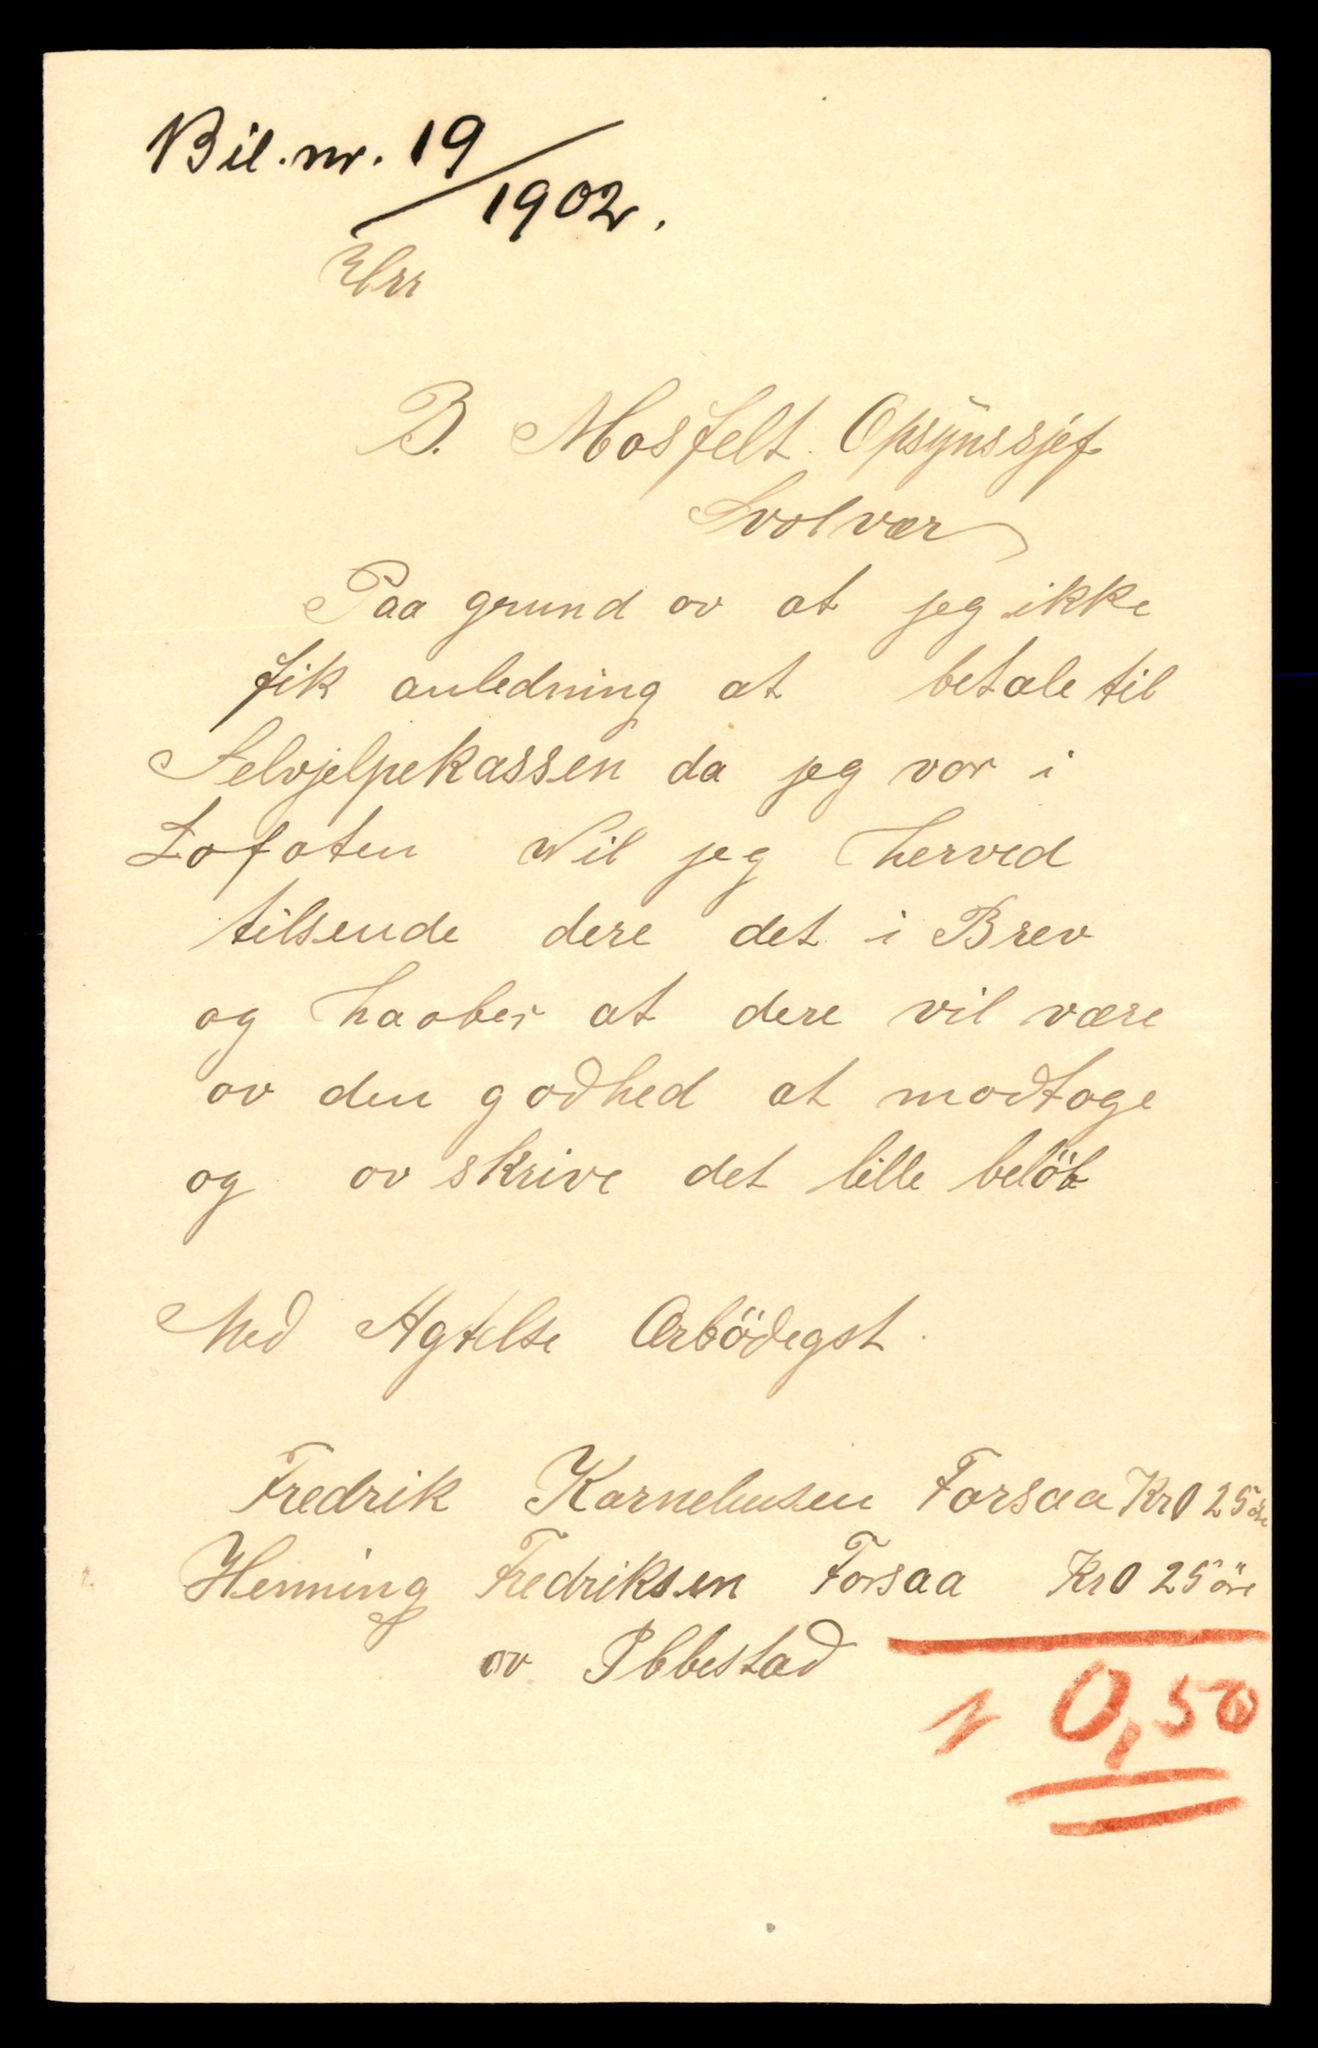 Bil. nr. 19/1902.
Hrr
B. Mosfelt Opsÿnssjef
Svolvær
Paa grund av at jeg ikke
fik anledning at betale til
Selvjelpekassen da jeg var i
Lofoten Vil jeg herved
tilsende dere det i Brev
og haaber at dere vil være
av den godhed at modtage
og av skrive det lille belöb
Med Agtelse Ærbödegst
Fredrik Karneliusen Forsaa Kr 0 25 öre
Henning Fredriksen Forsaa Kr 0 25 öre
av Ibbestad
0,50